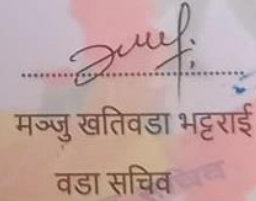 मञ्जु खतिवडा भट्टराई
वडा सचिव